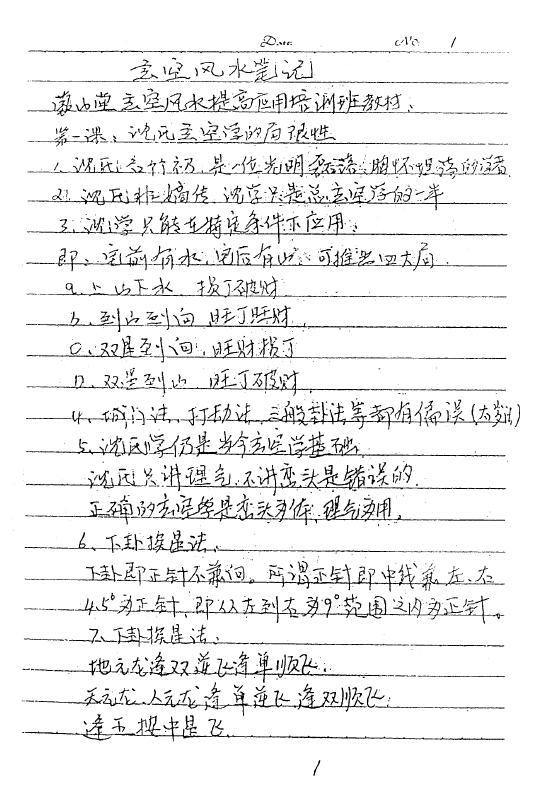 Date No. 1
玄空风水笔记
蒙山堂玄空风水提高应用培训班教材:
第一课:沈氏玄空学的局限性
1、沈氏名竹礽,是一位光明磊落、胸怀坦荡的
2、沈氏非嫡传,沈学只是总玄空学的一半
3、沈学只能在特定条件下应用:
即:宅前有水,宅后有山,可推出四大局
a、上山下水 损丁破财
b、到山到向 旺丁旺财
C、双星到向:旺财损丁
D、双星到山 旺丁破财
4、城门法、打劫法、三般卦法等都有偏误
5、沈氏学仍是当今玄空学基础
沈氏只讲理气,不讲峦头是错误的
正确的玄空学是峦头为体,理气为用,
6、下卦挨星法:
下卦即正针不兼向。所谓正针即中线兼左、右
4.5°为正针,即从左到右为9°范围之内为正针。
7、下卦挨星法:
地元龙逢双逆飞逢单顺飞:
天元龙、人元龙逢单逆飞,逢双顺飞:
逢五按中星飞
1